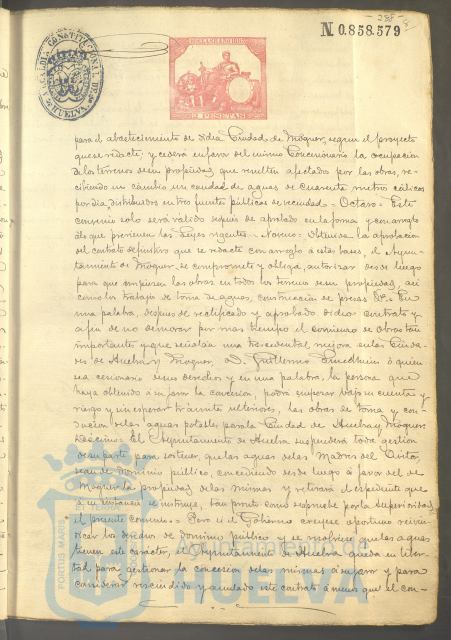 N 0.858.579
ALCALDIA CONSTITUCIONAL DE HUELVA
2 PESETAS
para el abastecimiento de dicha Ciudad de Moguer, segun el proyecto
que se redacte; y cederá en favor del mismo Concesionario la ocupacion
de los terrenos de su propiedad que resulten afectados por las obras, re-
cibiendo en cambio un caudal de aguas de cuarenta metros cúbicos
por dia, distribuidos en tres fuentes públicas de vecindad = Octavo: Este
convenio solo será valido despues de aprobado en la forma y con arreglo
á lo que previenen las Leyes vigentes = Noveno: Obtenida la aprobacion
del contrato definitivo que se redacte con arreglo á estas bases, el Ayun-
tamiento de Moguer, se compromete y obliga, autorizar desde luego
para que empiecen las obras en todos los terrenos de su propiedad, asi
como los trabajos de toma de aguas, construccion de presas &ª. En
una palabra, despues de rectificado y aprobado dicho contrato y
á fin de no demorar por mas tiempo el comienzo de obras tan
importantes y que señalan una trascendental mejora en las Ciuda-
des de Huelva y Moguer, D. Guillermo Sundheim ó quien
sea cesionario de sus derechos y en una palabra, la persona que
haya obtenido á su favor la concesion, podrá empezar bajo su cuenta y
riesgo y sin esperar trámites ulteriores, las obras de toma y con-
duccion de las aguas potables para la Ciudad de Huelva y Moguer.
Decimo: El Ayuntamiento de Huelva suspenderá toda gestion
de su parte, para sostener, que las aguas de las Madres del Avitor
sean de dominio público, concediendo desde luego á favor del de
Moguer la propiedad de las mismas y retirará el espediente que
á su instancia se instruye, tan pronto como se apruebe por la superioridad
el presente Convenio = Pero si el Gobierno creyese oportuno reivin-
dicar los derechos de dominio público y se resolviese que las aguas
tienen este carácter, el Ayuntamiento de Huelva queda en liber-
tad para gestionar la concesion de las mismas á su favor y para
considerar rescindido y anulado este contrato á menos que el con-
PORTUS MARIS
Ayuntamiento de
HUELVA